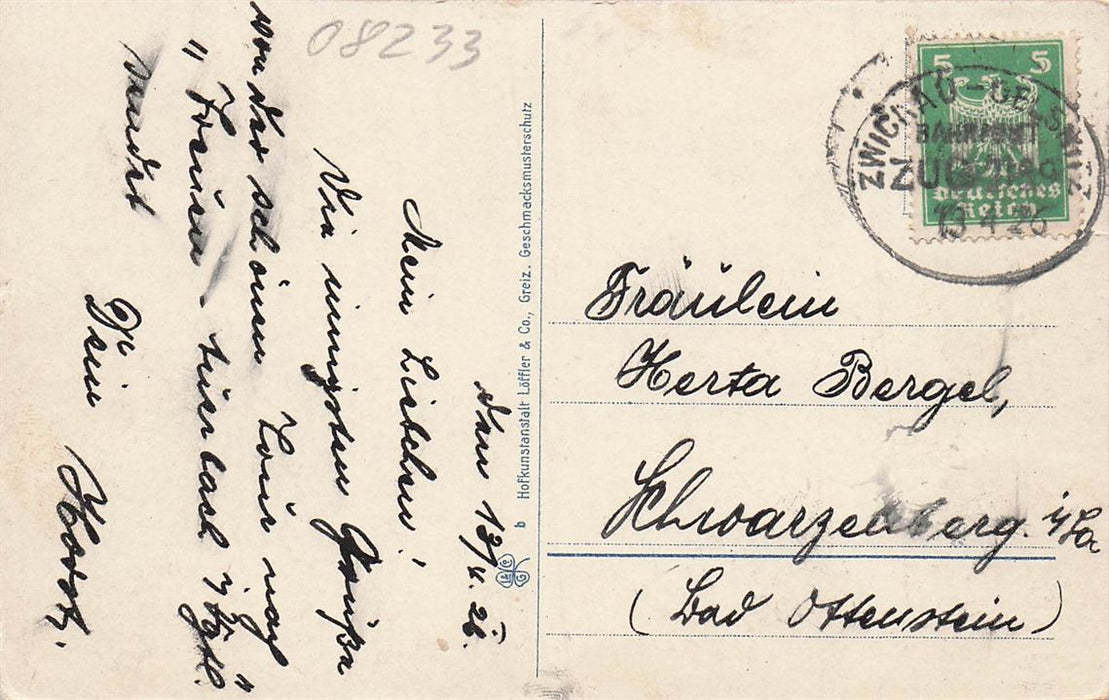 08233
den 13/4. 26.
Mein Liebchen!
Die innigsten Grüße
von der schönen Tour nach
" Treuen - Auerbach i/Vgtl. "
sendet
Dir
Dein Horst.
b Hofkunstanstalt Löffler & Co., Greiz. Geschmacksmusterschutz
L & C G
5 5
Deutsches
Reich
ZWICKAU - OELSNITZ
BAHNPOST
ZUG
13 4 26
Fräulein
Herta Bergel,
Schwarzenberg. i/Sa
(Bad Ottenstein)